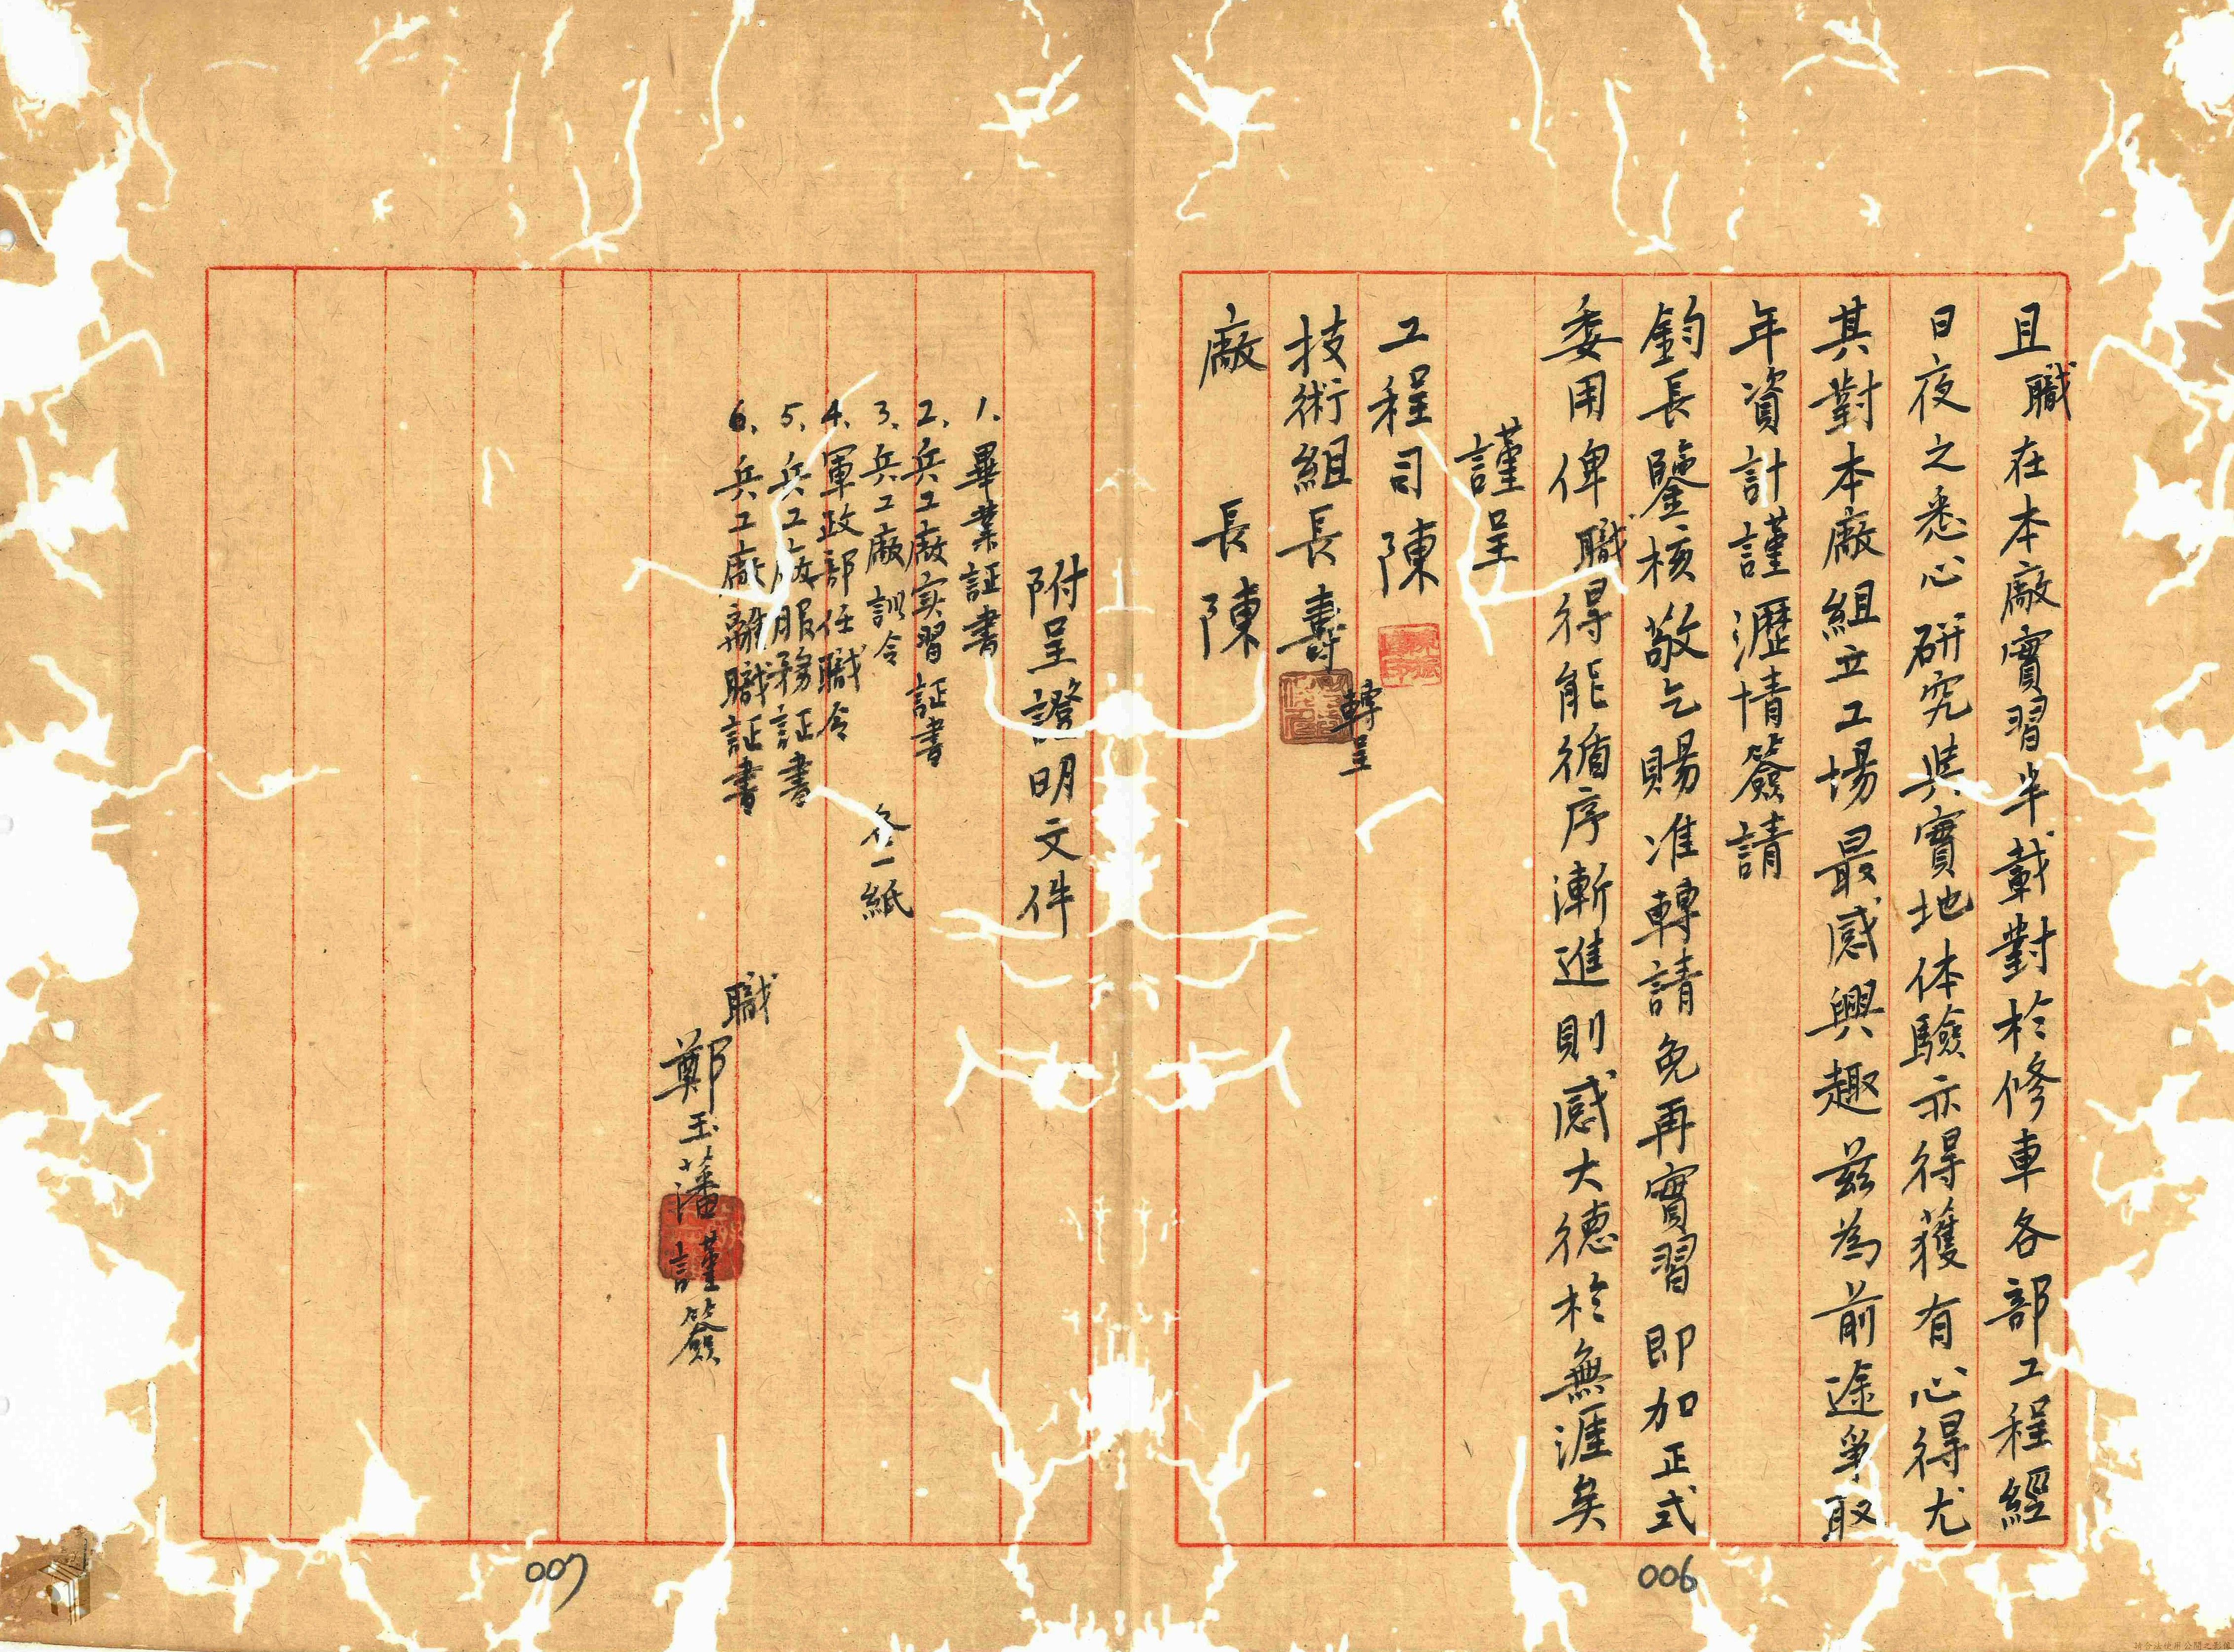 且職在本廠實習半載對於修車各部工程經
日夜之悉心研究與實地体驗亦得獲有心得尤
其對本廠組立工場最感興趣茲為前途爭取
年資計謹瀝情簽請
鈞長鑒核敬乞賜准轉請免再實習即加正式
委用俾職得能循序漸進則感大德於無涯矣
謹呈
工程司陳
技術組長壽 轉呈
廠長陳
附呈證明文件
1、畢業証書
2、兵工廠实習証書
3、兵工廠訓令
4、軍政部任職令
5、兵工廠服務証書
6、兵工廠離職証書
各一紙
職鄭玉藩謹簽
006
007